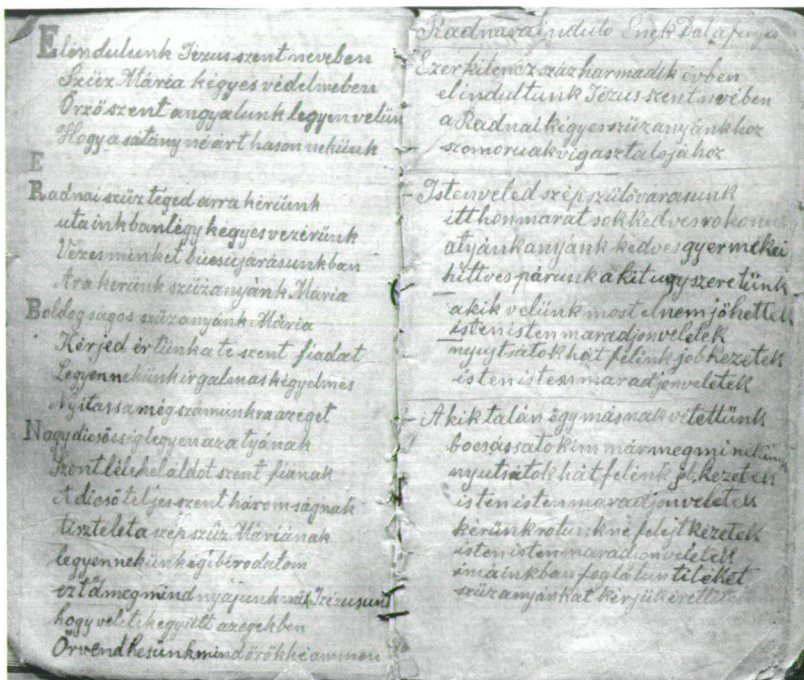 Elöndulunk Jézus szent nevében
Szüz Mária kégyes védelmeben
Örzö szent angyalunk legyen velün
Hogy a sátány né árt hason nekünk
E
Radnai szüz téged arra kérünk
uta inkban légy kégyes vezérünk
Vezes minket bucsujárásunkban
Ara kerünk szüzanyánk Maria
Boldogságos szüzanyánk Mária
Kérjed értünk a te szent fiadat
Legyen nekünk irgalmas kégyelmes
Nyitassa még számunkra az eget
Nagy dicsösség legyen az a tyának
Szent léleknek áldot szent fianak
A dicsö teljes szent három ságnak
tisztelet a szép szüz Máriának
legyen nekünk égi birodatom
hogy veletek együtt az egekben
Örvendhesünk mind örökké ammen
Radnara induto Enek Dalafenyes
Ezerkilencz száz harmadik évben
elindultunk Jézus szent nevében
a Radnai kégyes szüzanyánkhoz
szomoruak vigasztalojához
Isten veled szép szülövárasunk
itthon marat sok kedves rokon
atyánk anyánk kedves gyermekei
hittves párunk a kit ugy szeretünk
akik velünk most el nem jöhettek
isten isten maradjon veletek
nyujtsátok hát felénk job kezetek
isten isten maradjon veletek
Akik talán égy másnak vétettünk
bocsássatok im már meg mi nekün
nyutsátok hát felénk jb. kezetek
isten isten maradjon veletek
kérünk rolunk ne felejt kézetek
isten isten maradjon veletek
imáinkban foglalun titéket
szüzanyánkat kérjük érettetek